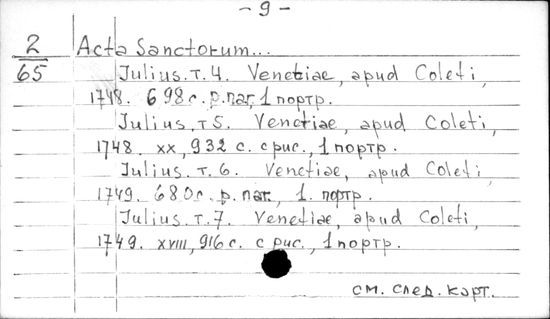 - 9 -
2 Acta Sanctorum...
65 Julius. т. 4. Venetiae, apud Coleti,
1748. 698 с. р. паг, 1 портр.
Julius, т 5. Venetiae, apud Coleti,
1748. xx, 932 с. с рис., 1 портр.
Julius. т. 6. Venetiae, apud Coleti,
1749. 680 с. р. паг., 1. портр.
Julius. т. 7. Venetiae, apud Coleti,
1749. XVIII, 916 с. с рис., 1 портр.
см. след. карт.